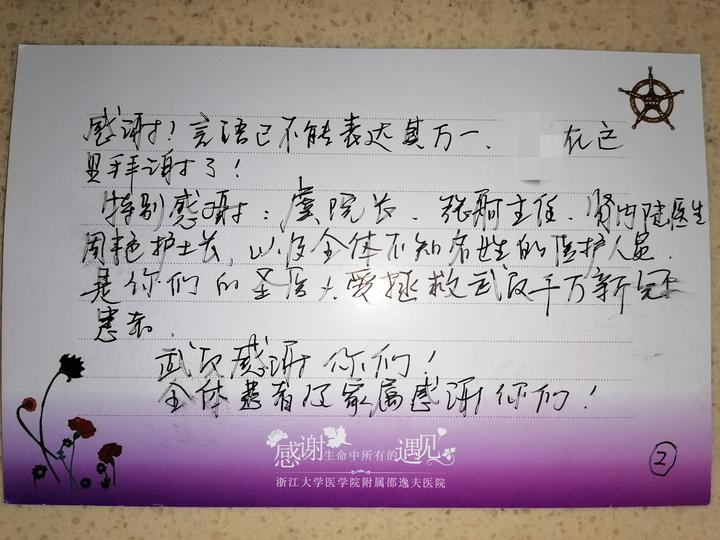 感谢！言语已不能表达其万一、 在这
里拜谢了！
特别感谢：虞院长、张舸主任、肾内陆医生
周艳护士长，以及全体不知名姓的医护人员．
是你们的圣医大爱拯救武汉千万新冠
患者．
武汉感谢你们！
全体患者及家属感谢你们！
感谢生命中所有的遇见
浙江大学医学院附属邵逸夫医院
②